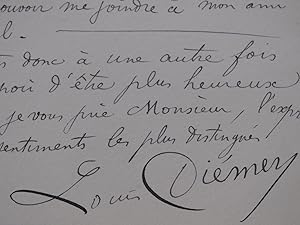 pouvoir me joindre à mon ami
l.
donc à une autre fois
d'être plus heureux
je vous prie Monsieur, l'expr
sentiments les plus distingués
Louis Diémer